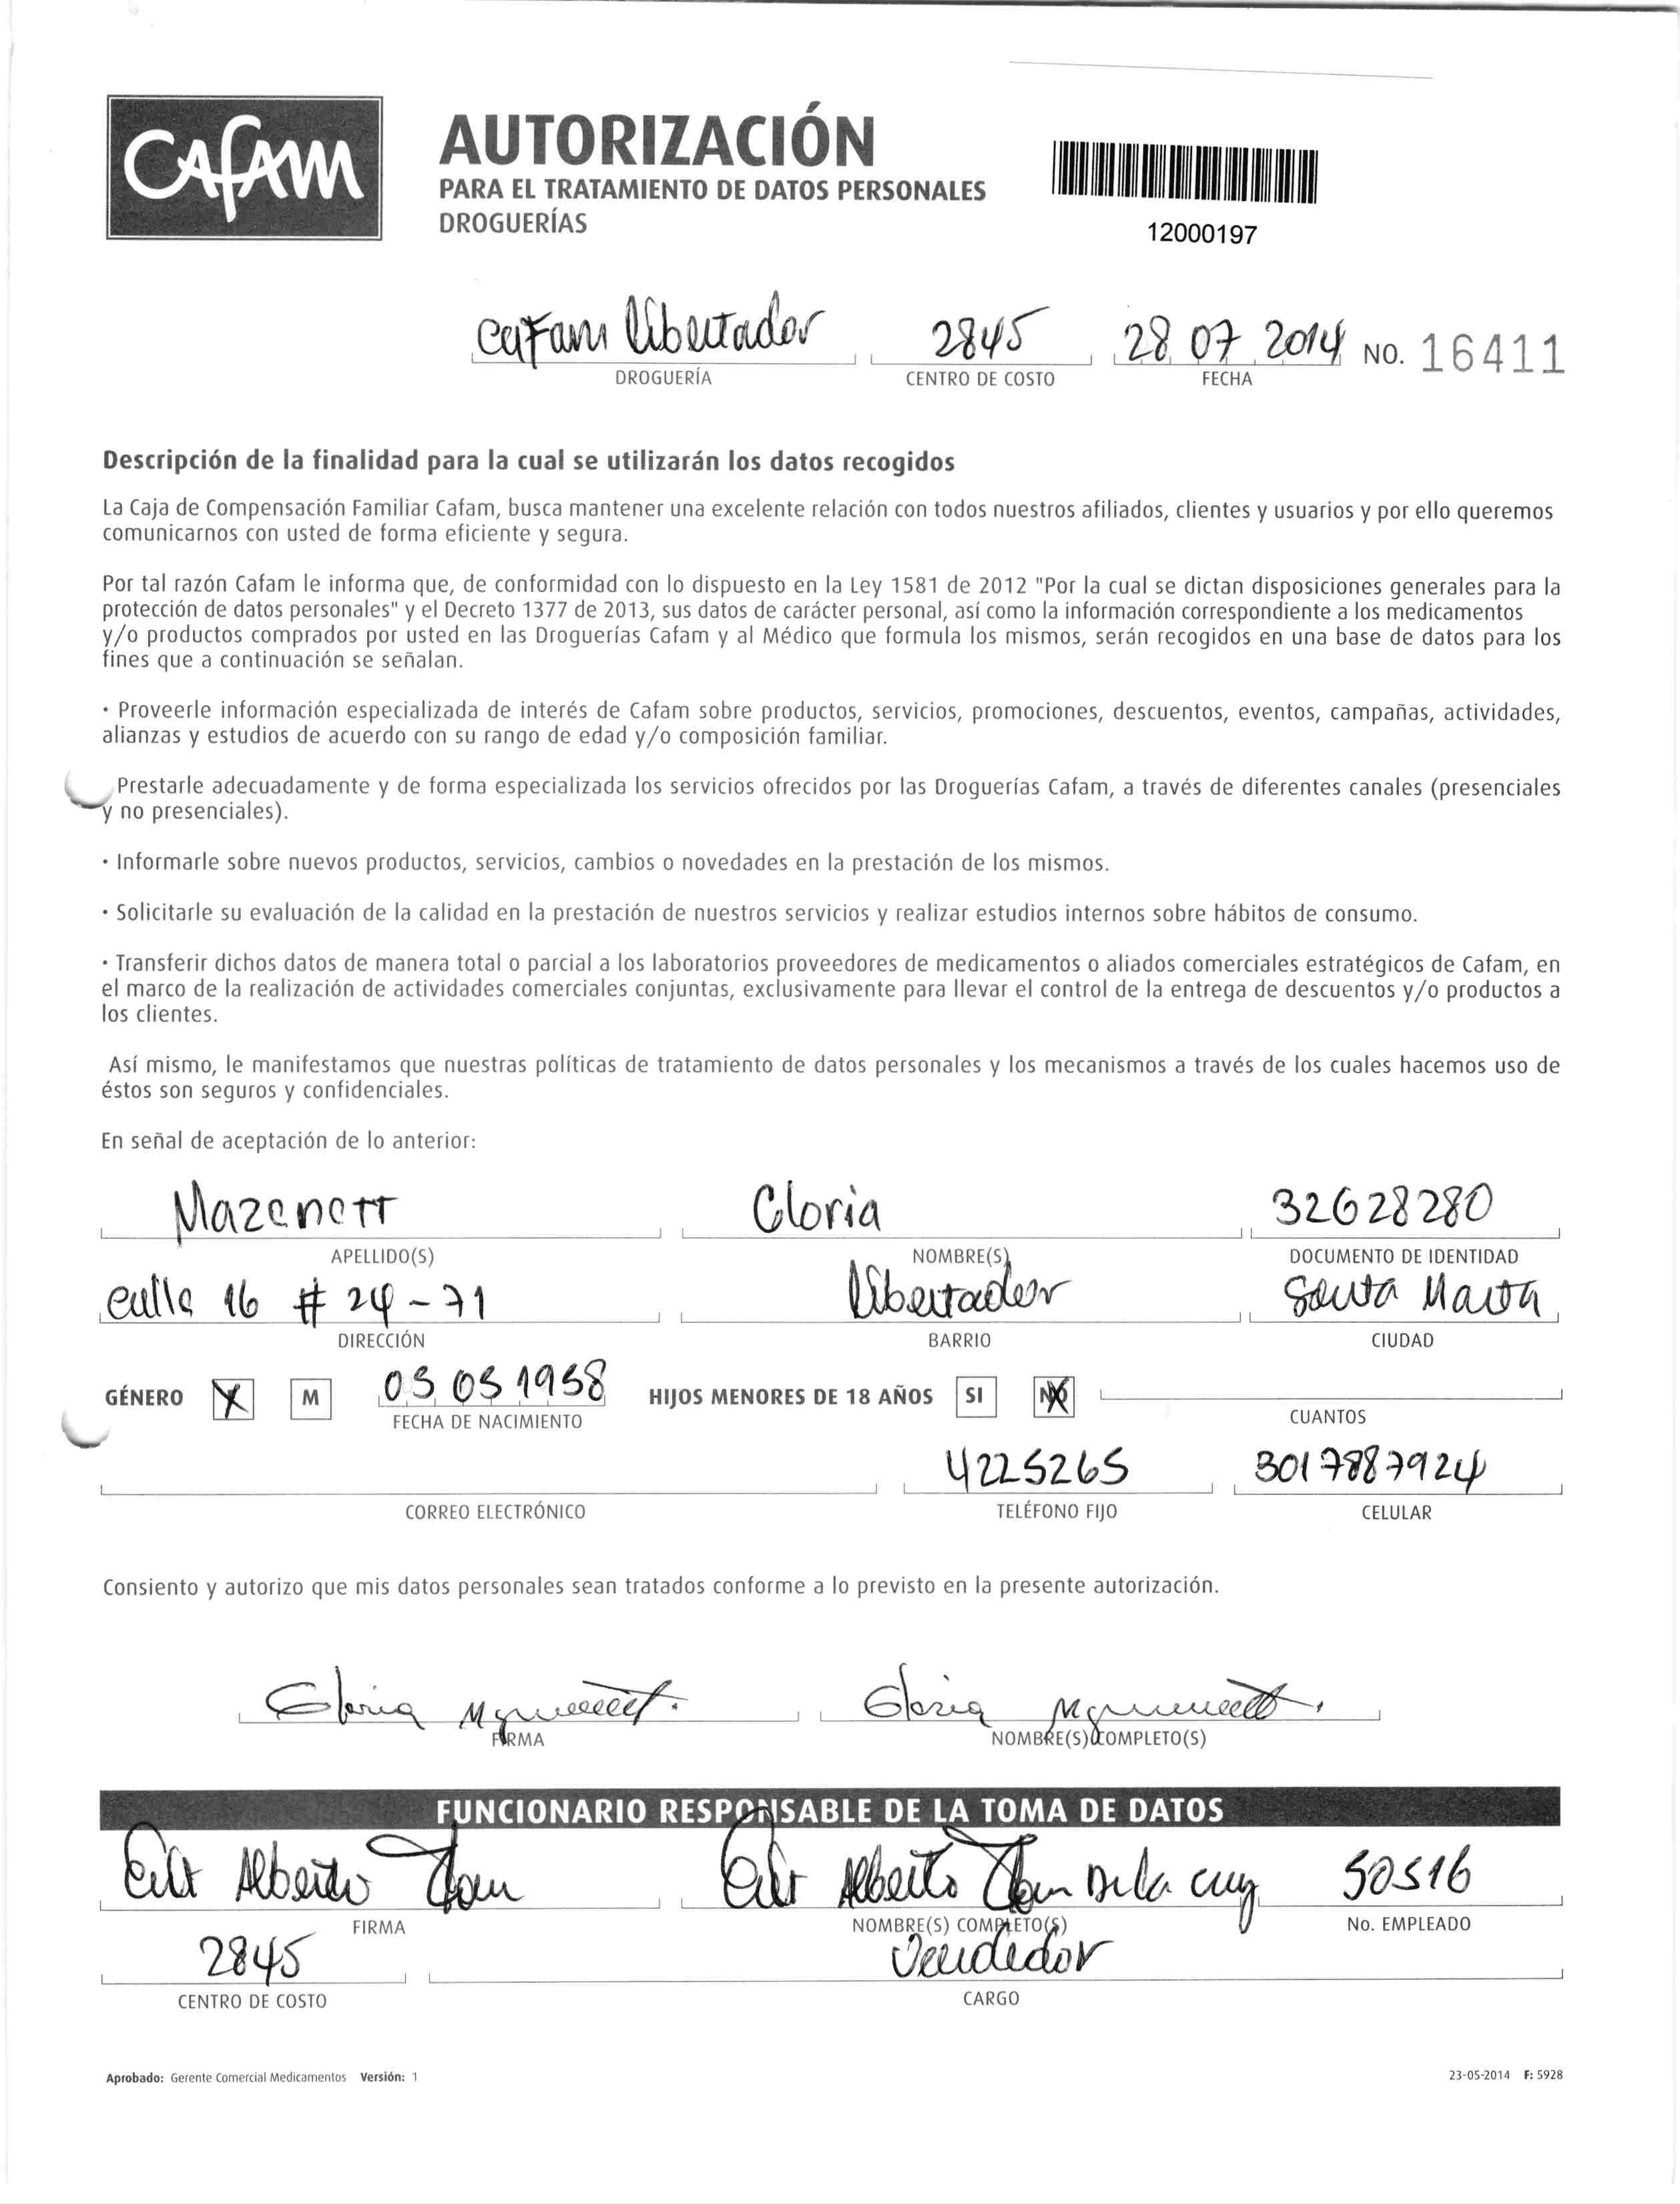 CAFAM
AUTORIZACIÓN
PARA EL TRATAMIENTO DE DATOS PERSONALES
DROGUERÍAS
12000197
Cafam libertador 2845 28 07 2014 NO. 16411
DROGUERÍA CENTRO DE COSTO FECHA
Descripción de la finalidad para la cual se utilizarán los datos recogidos
La Caja de Compensación Familiar Cafam, busca mantener una excelente relación con todos nuestros afiliados, clientes y usuarios y por ello queremos
comunicarnos con usted de forma eficiente y segura.
Por tal razón Cafam le informa que, de conformidad con lo dispuesto en la Ley 1581 de 2012 "Por la cual se dictan disposiciones generales para la
protección de datos personales" y el Decreto 1377 de 2013, sus datos de carácter personal, así como la información correspondiente a los medicamentos
y/o productos comprados por usted en las Droguerías Cafam y al Médico que formula los mismos, serán recogidos en una base de datos para los
fines que a continuación se señalan.
· Proveerle información especializada de interés de Cafam sobre productos, servicios, promociones, descuentos, eventos, campañas, actividades,
alianzas y estudios de acuerdo con su rango de edad y/o composición familiar.
Prestarle adecuadamente y de forma especializada los servicios ofrecidos por las Droguerías Cafam, a través de diferentes canales (presenciales
y no presenciales).
· Informarle sobre nuevos productos, servicios, cambios o novedades en la prestación de los mismos.
· Solicitarle su evaluación de la calidad en la prestación de nuestros servicios y realizar estudios internos sobre hábitos de consumo.
· Transferir dichos datos de manera total o parcial a los laboratorios proveedores de medicamentos o aliados comerciales estratégicos de Cafam, en
el marco de la realización de actividades comerciales conjuntas, exclusivamente para llevar el control de la entrega de descuentos y/o productos a
los clientes.
Así mismo, le manifestamos que nuestras políticas de tratamiento de datos personales y los mecanismos a través de los cuales hacemos uso de
éstos son seguros y confidenciales.
En señal de aceptación de lo anterior:
Mazenett Gloria 32628280
APELLIDO(S) NOMBRE(S) DOCUMENTO DE IDENTIDAD
Calle 16 # 24-71 libertador Santa Marta
DIRECCIÓN BARRIO CIUDAD
GÉNERO X M 03 03 1958 HIJOS MENORES DE 18 AÑOS SI NO
FECHA DE NACIMIENTO CUANTOS
4225265 3017887924
CORREO ELECTRÓNICO TELÉFONO FIJO CELULAR
Consiento y autorizo que mis datos personales sean tratados conforme a lo previsto en la presente autorización.
Gloria Gloria
FIRMA NOMBRE(S) COMPLETO(S)
FUNCIONARIO RESPONSABLE DE LA TOMA DE DATOS
Alberto Alberto De la cruz 50516
FIRMA NOMBRE(S) COMPLETO(S) No. EMPLEADO
2845 Vendedor
CENTRO DE COSTO CARGO
Aprobado: Gerente Comercial Medicamentos Versión: 1 23-05-2014 F: 5928